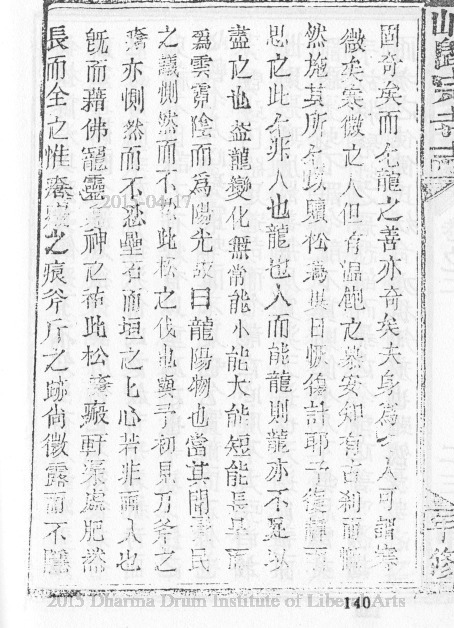 固奇矣而允龍之善亦奇矣夫身為人可謂寒
微矣寒微之人但有溫飽之慕安知有古刹而
然施其所允以贖松為異日恢復計耶予復靜而
思之此允非人也龍也人而能龍則龍亦不足以
盡之也盖龍變化無常能小能大能短能長旱而
為雲霓陰而為陽光故曰龍陽物也當其聞民
之議惻然而不此松之伐也與予初見刀斧之
亦惻然而不忍壘石而垣之心若非兩人也
既而藉佛寵靈神之祐此松軒渠處肥然
長而全之惟之痕斧斤之跡尚微露而不隱
年修
2015-04-17
140
2015 Dharma Drum Institute of Liberal Arts